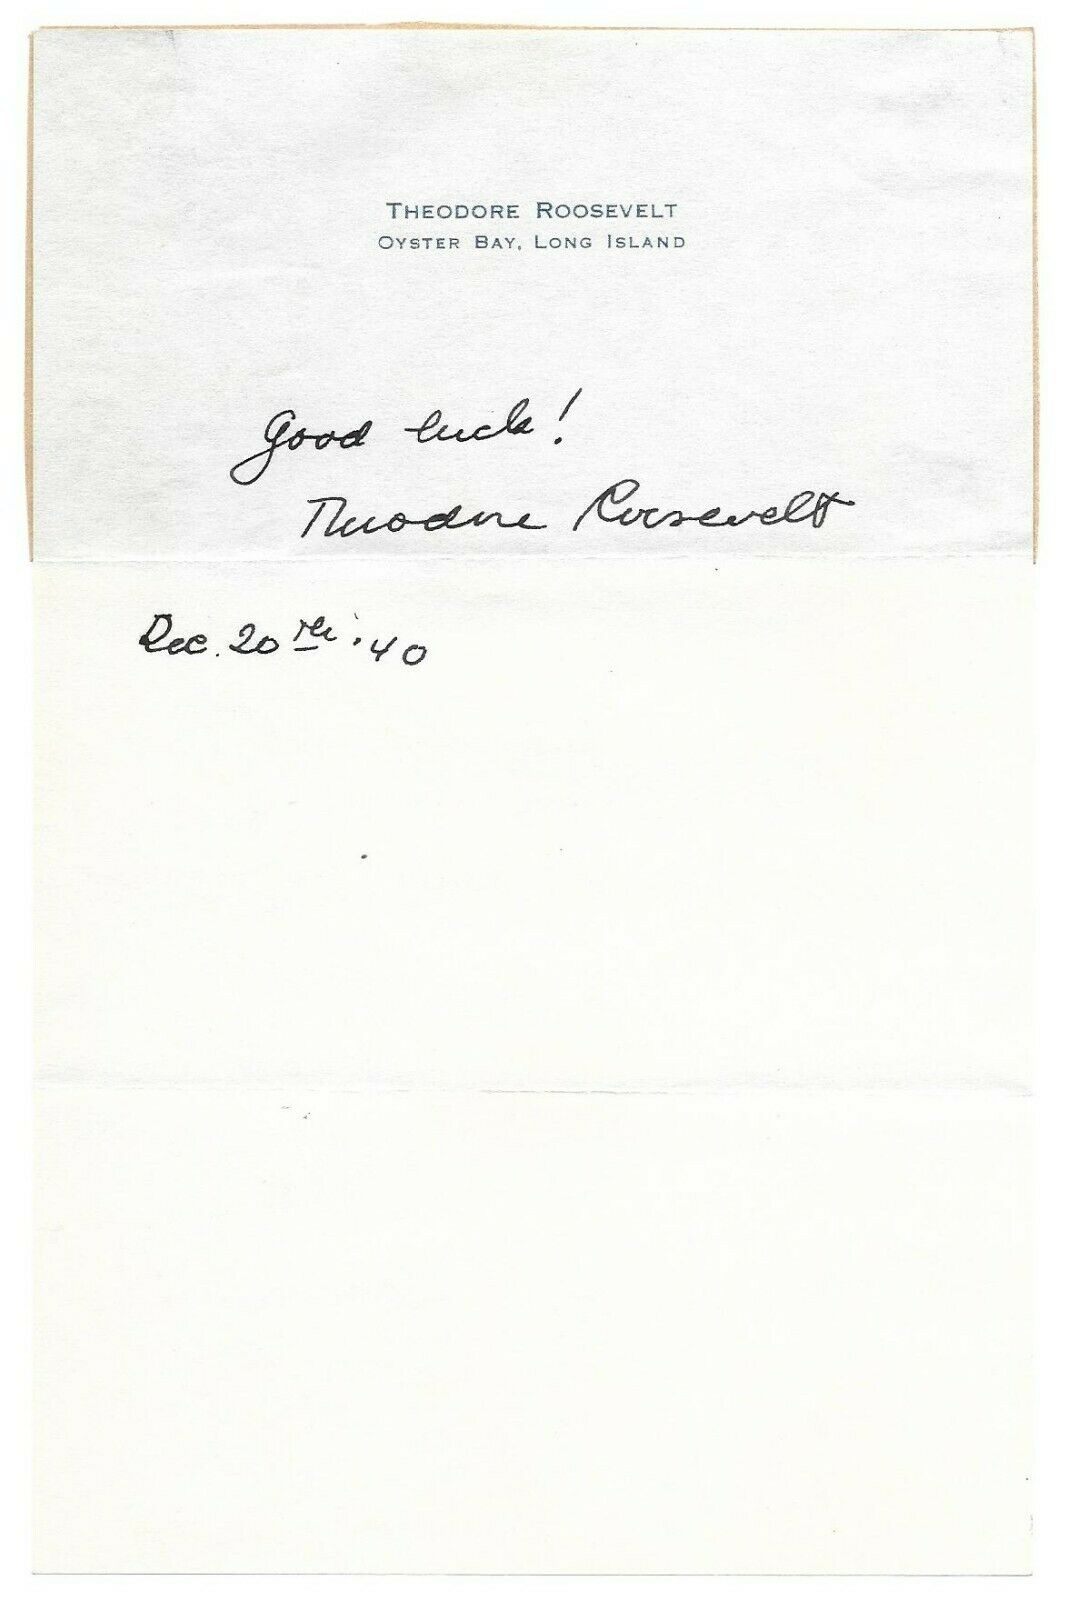 THEODORE ROOSEVELT
OYSTER BAY, LONG ISLAND
Good luck!
Theodore Roosevelt
Dec. 20th. 40